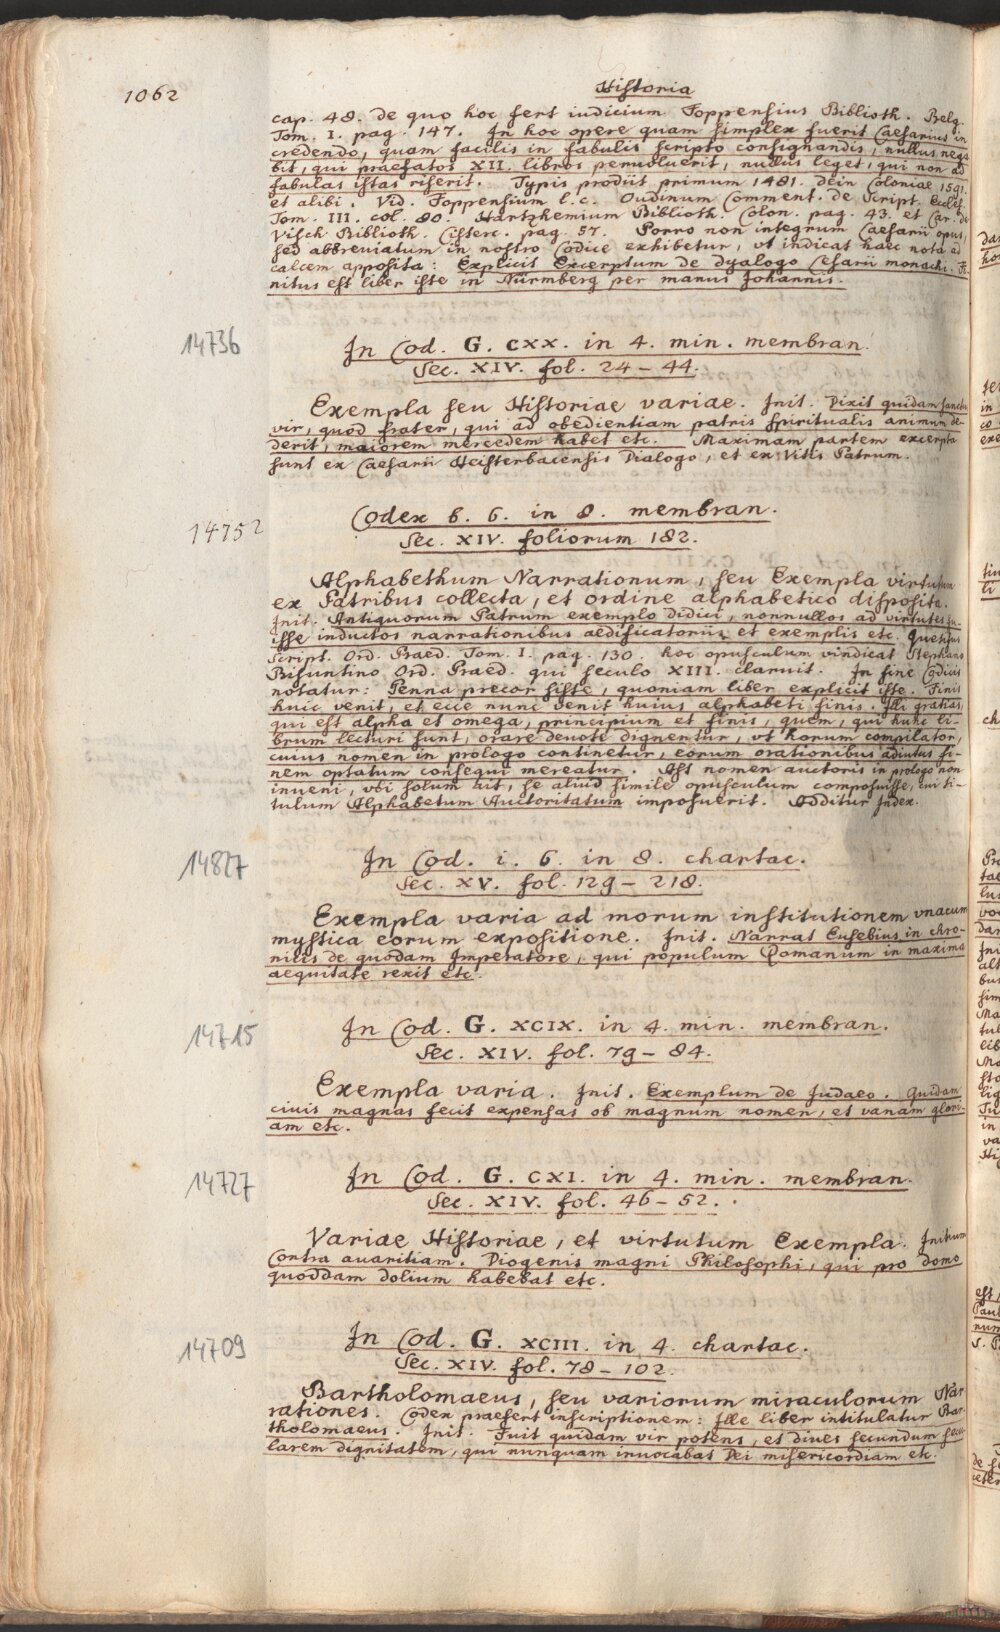 1062
Historia
cap. 48. de quo hoc fert iudicium Foppensius Biblioth. Belg.
Tom. I. pag. 147. In hoc opere quam simplex fuerit Caesarius in
credendo, quam facilis in fabulis scripto consignandis, nullus nega
bit, qui praefatos XII. libros peruoluerit, nullus leget, qui non ad
fabulas istas riserit. Typis prodiit primum 1481. dein Coloniae 1591.
et alibi. Vid. Foppensium l. c. Oudinum Comment. de Script. Eccles.
Tom. III. col. 80. Hartzhemium Biblioth. Colon. pag. 43. et Car. de
Visch Biblioth. Cisterc. pag. 57. Porro non integrum Caesarii opus,
sed abbreuiatum in nostro Codice exhibetur, vt indicat haec nota ad
calcem apposita: Explicit Excerptum de dyalogo Cesarii monachi. Fi-
nitus est liber iste in Nürmberg per manus Johannis.
14736
In Cod. G. CXX. in 4. min. membran.
Sec. XIV. fol. 24 – 44.
Exempla seu Historiae variae. Init. Dixit quidam sanctus
vir, quod frater, qui ad obedientiam patris spiritualis animum de-
derit, maiorem mercedem habet etc. Maximam partem excerpta
sunt ex Caesarii Heisterbacensis Dialogo, et ex Vitis Patrum.
14752
Codex b. 6. in 8. membran.
Sec. XIV. foliorum 182.
Alphabethum Narrationum, seu Exempla virtutum
ex Patribus collecta, et ordine alphabetico disposita.
Init. Antiquorum Patrum exemplo didici, nonnullos ad virtutes fu-
isse inductos narrationibus aedificatoriis et exemplis etc. Quetifus
Script. Ord. Praed. Tom. I. pag. 130. hoc opusculum vindicat Stephano
Bisuntino Ord. Praed. qui seculo XIII. claruit. In fine Codicis
notatur: Penna precor siste, quoniam liber explicit iste. Finis
huic venit, et ecce nunc venit huius alphabeti finis. Illi gratias,
qui est alpha et omega, principium et finis, quem, qui hunc li-
brum lecturi sunt, orare deuote dignentur, vt horum compilator,
cuius nomen in prologo continetur, eorum orationibus adiutus fi-
nem optatum consequi mereatur. Ast nomen auctoris in prologo non
inueni, vbi solum ait, se aliud simile opusculum composuisse, cui ti-
tulum Alphabetum Auctoritatum imposuerit. Additur Index.
14827
In Cod. i. 6. in 8. chartac.
Sec. XV. fol. 129 – 218.
Exempla varia ad morum institutionem vnacum
mystica eorum expositione. Init. Narrat Eusebius in chro-
nicis de quodam Imperatore, qui populum Romanum in maxima
aequitate rexit etc.
14715
In Cod. G. XCIX. in 4. min. membran.
Sec. XIV. fol. 79 – 84.
Exempla varia. Init. Exemplum de Judaeo. Quidam
ciuis magnas fecit expensas ob magnum nomen, et vanam glori-
am etc.
14727
In Cod. G. CXI. in 4. min. membran.
Sec. XIV. fol. 46 – 52.
Variae Historiae, et virtutum Exempla. Initium
Contra auaritiam. Diogenis magni Philosophi, qui pro domo
quoddam dolium habebat etc.
14709
In Cod. G. XCIII. in 4. chartac.
Sec. XIV. fol. 78 – 102.
Bartholomaeus, seu variorum miraculorum Nar
rationes. Codex praefert inscriptionem: Ille liber intitulatur Bar-
tholomaeus. Init. Fuit quidam vir potens, et diues secundum secu
larem dignitatem, qui nunquam inuocabat Dei misericordiam etc.